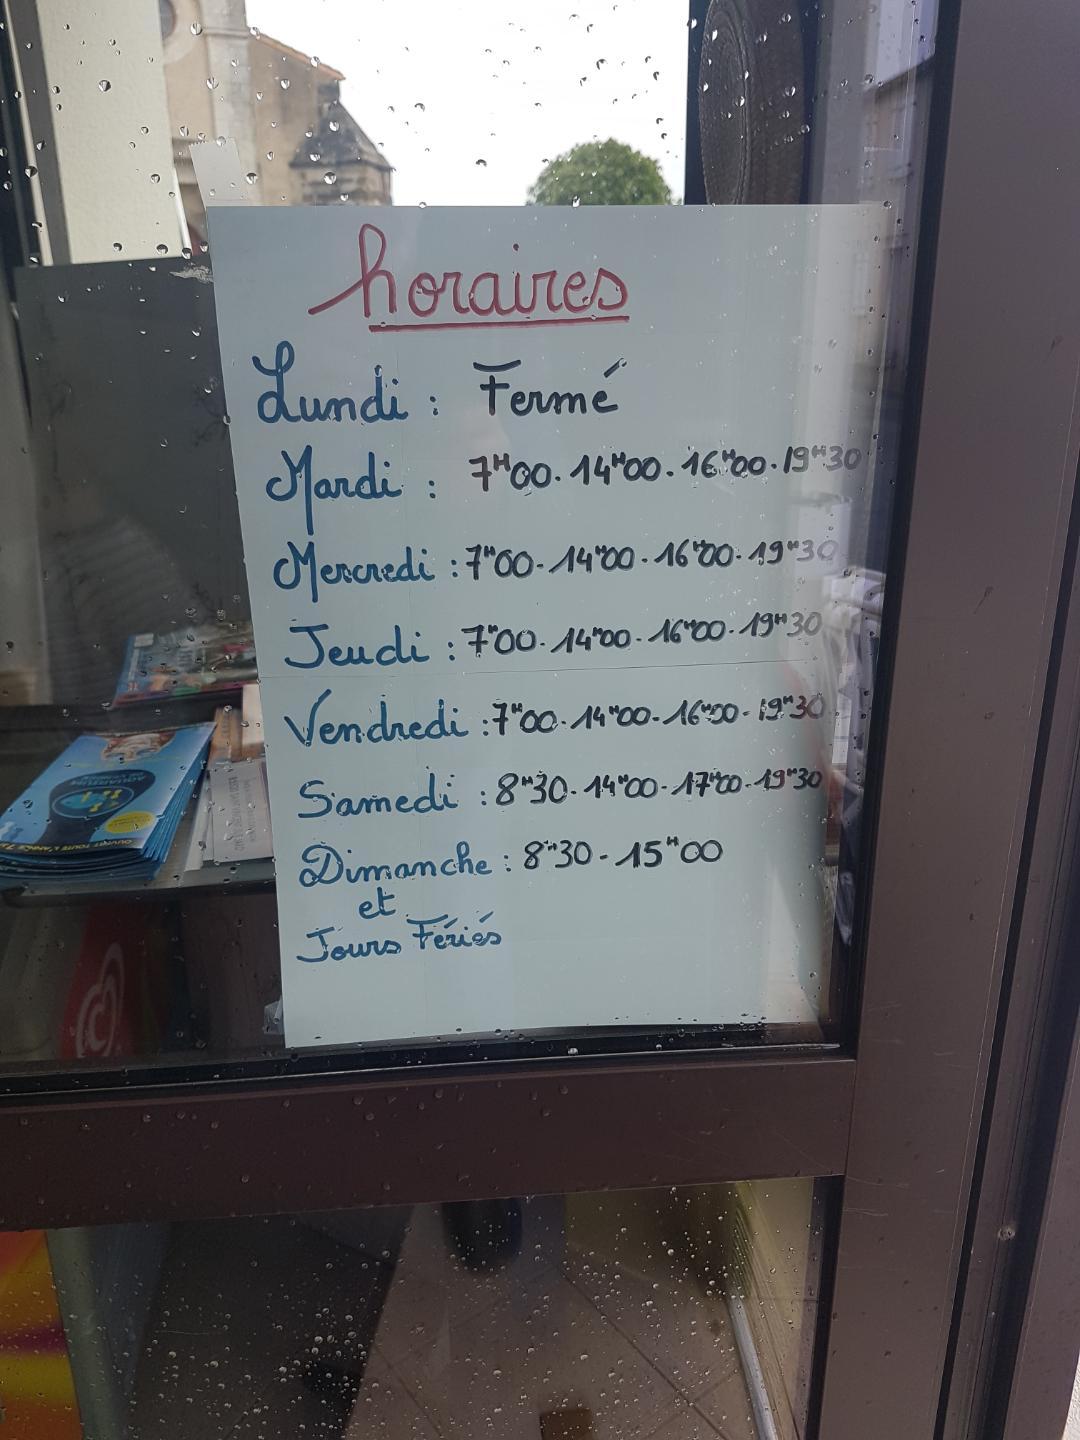 horaires
Lundi : Fermé
Mardi : 7H00. 14H00. 16H00. 19H30
Mercredi : 7H00. 14H00. 16H00. 19H30
Jeudi : 7H00. 14H00. 16H00. 19H30
Vendredi : 7H00. 14H00. 16H00. 19H30
Samedi : 8H30. 14H00. 17H00. 19H30
Dimanche : 8H30 - 15H00
et
Jours Fériés
AQUARIUM
OUVERT TOUTE L'ANNÉE